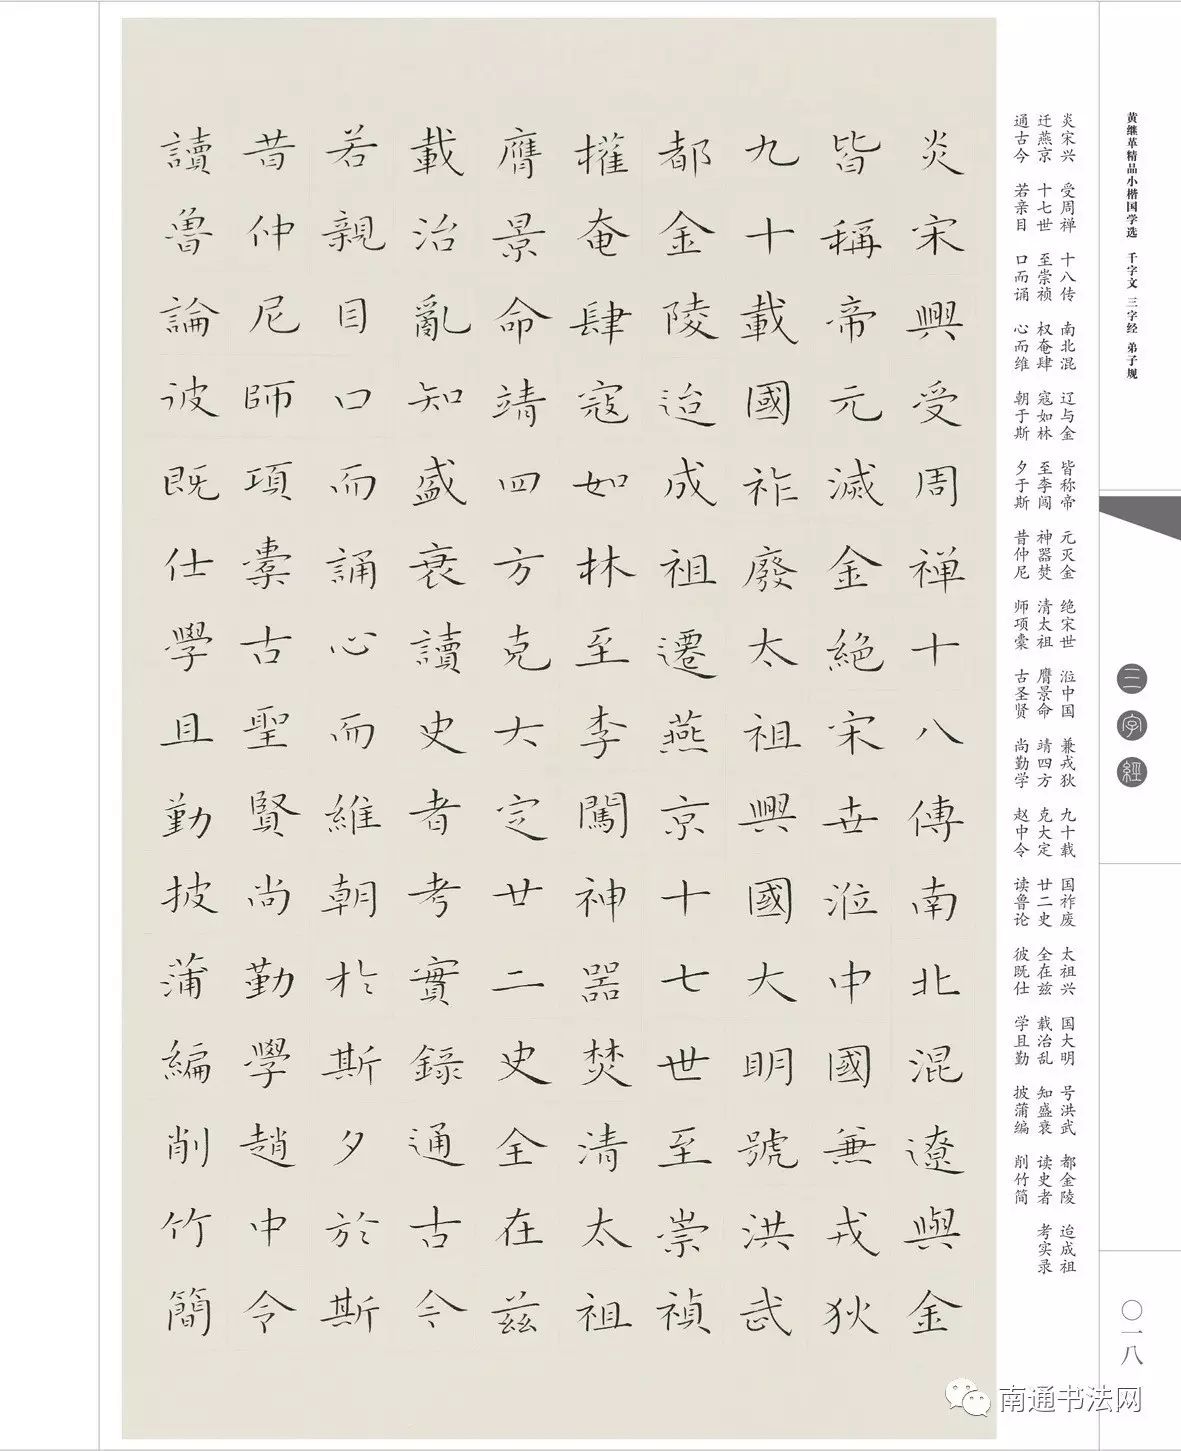 黄继革精品小楷国学选 千字文 三字经 弟子规
三字經
〇一八
炎宋兴 受周禅 十八传 南北混 辽与金 皆称帝 元灭金 绝宋世 涖中国 兼戎狄 九十载 国祚废 太祖兴 国大明 号洪武 都金陵 迨成祖
迁燕京 十七世 至崇祯 权奄肆 寇如林 至李闯 神器焚 清太祖 膺景命 靖四方 克大定 廿二史 全在兹 载治乱 知盛衰 读史者 考实录
通古今 若亲目 口而诵 心而维 朝于斯 夕于斯 昔仲尼 师项橐 古圣贤 尚勤学 赵中令 读鲁论 彼既仕 学且勤 披蒲编 削竹简
炎宋興受周禅十八傳南北混遼與金
皆稱帝元滅金絕宋世涖中國兼戎狄
九十載國祚廢太祖興國大明號洪武
都金陵迨成祖遷燕京十七世至崇禎
權奄肆寇如林至李闖神器焚清太祖
膺景命靖四方克大定廿二史全在茲
載治亂知盛衰讀史者考實錄通古今
若親目口而誦心而維朝於斯夕於斯
昔仲尼師項橐古聖賢尚勤學趙中令
讀魯論彼既仕學且勤披蒲編削竹簡
南通书法网